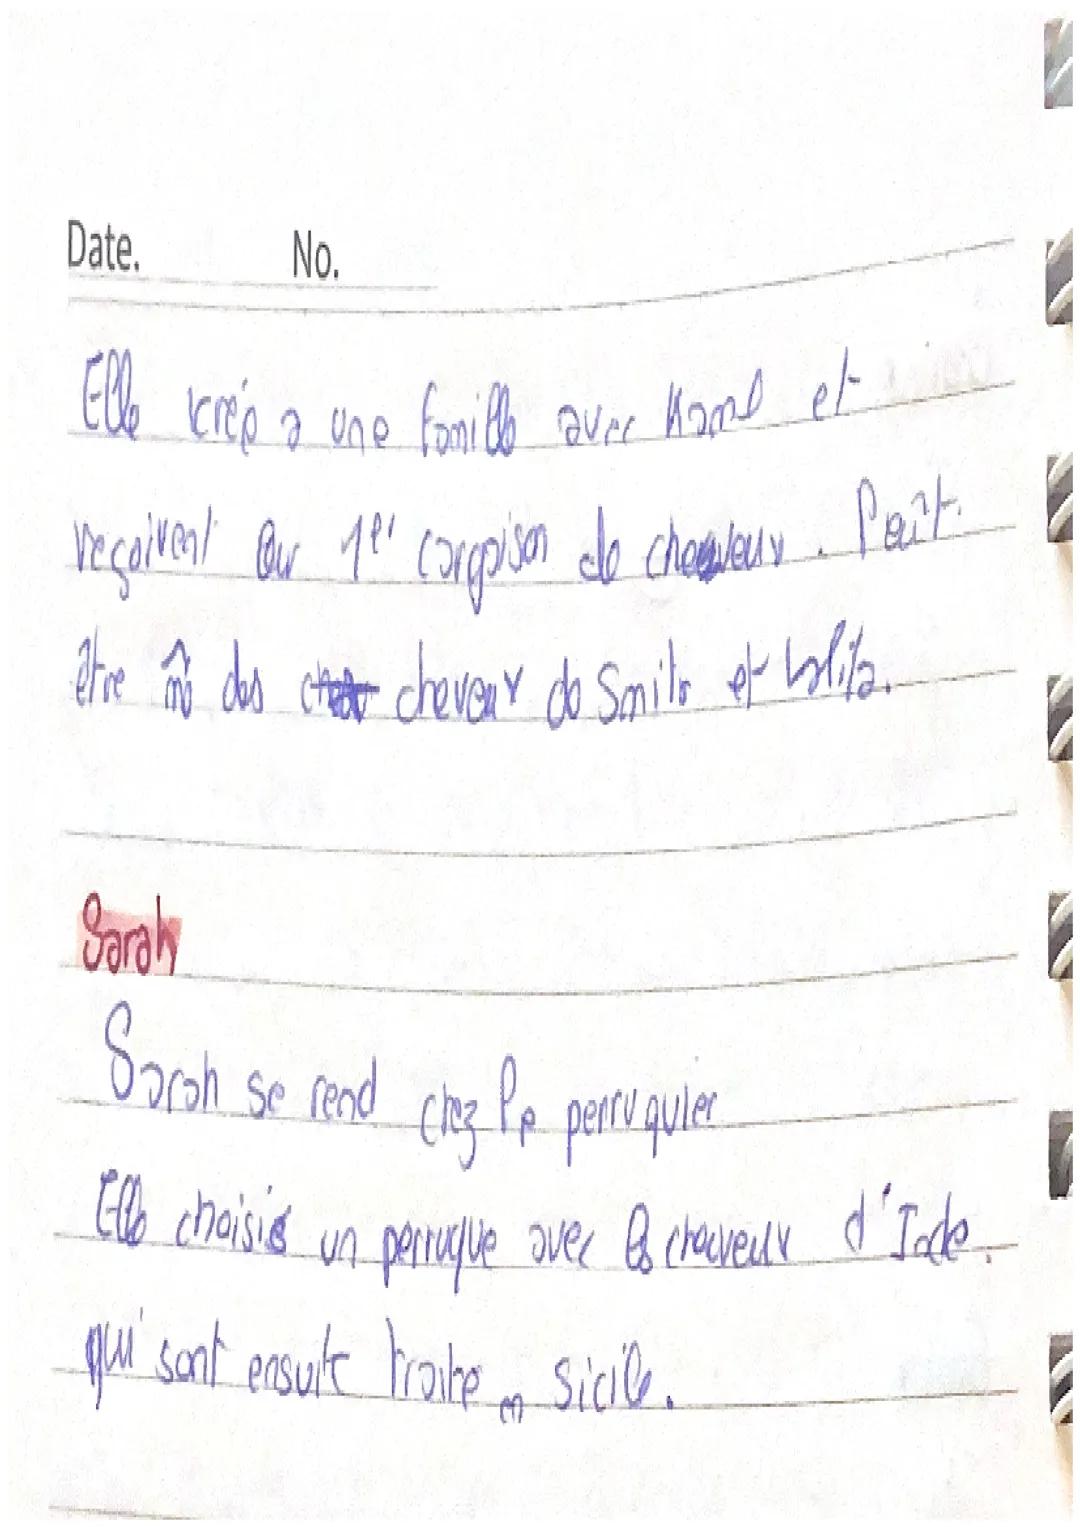 Date. No.
Elle krée a une famille avec Kamal et
reçoivent 1er cargaison de cheveux. Peût.
être mê des cheveux de Smita et Lalita.
Sarah
Sarah se rend chez le perruquier
Elle choisis un perruque avec les cheveux d'Inde.
qui sont ensuite traite en Sicile.